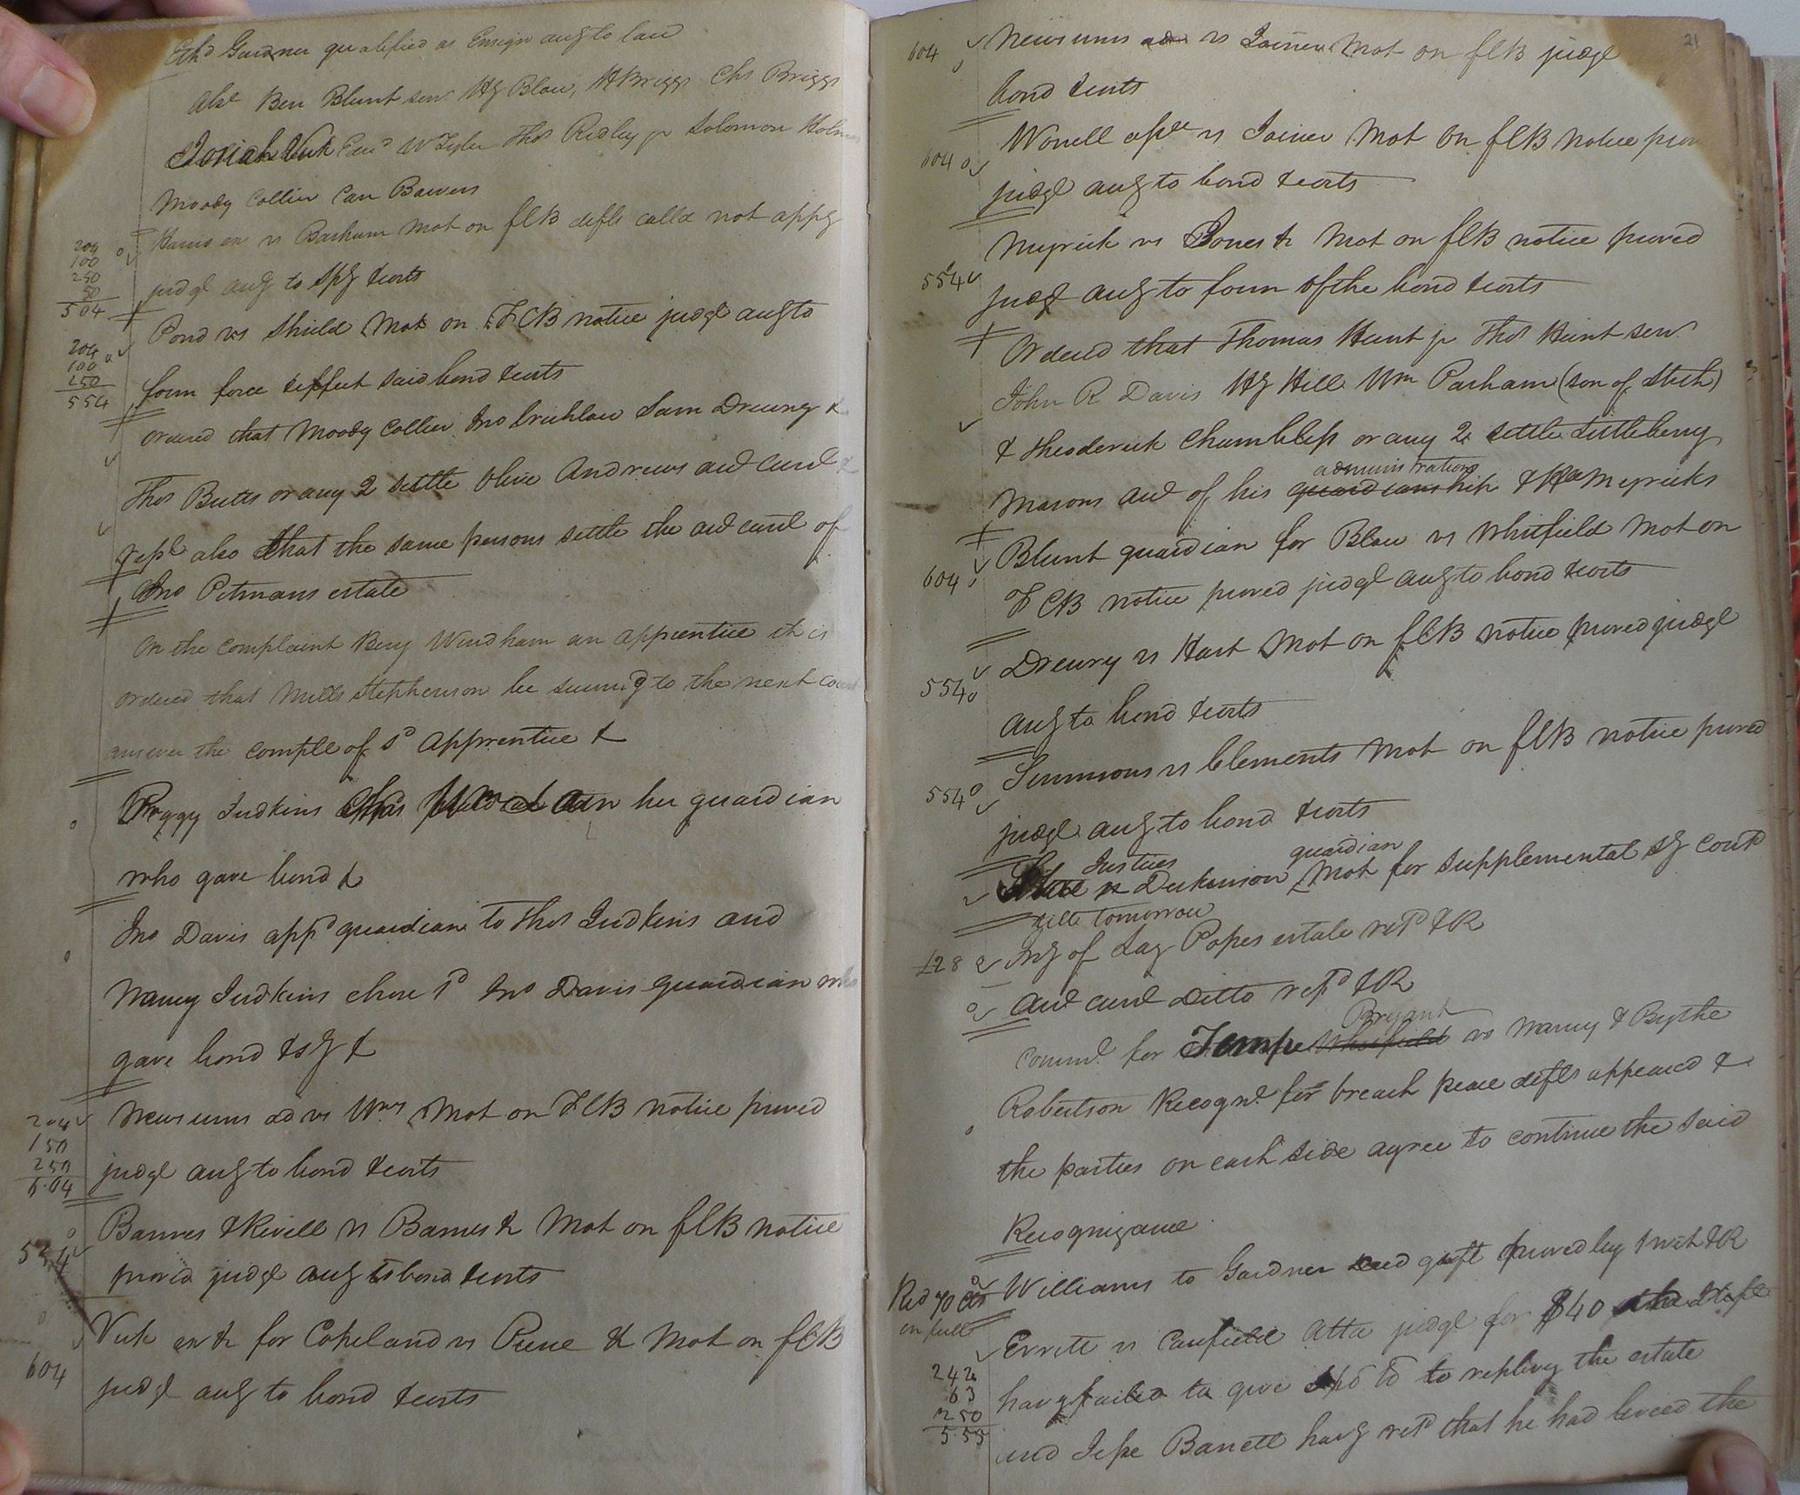 Gardner qualified as Ensign accg to law
Abst Ben Blunt senr Hy Blow, H Briggs Chs Briggs
Josiah Vick W Tyler Thos Ridley jr Solomon
Moody Collier Carr Bowers
204
100
250
50
504
Harris ex vs Barham Mot on fCB defts calld not appg
judgt accg to spy & costs
204
100
250
554
Pond vs Shield Mot on FCB notice judgt accg to
form force & effect said bond & costs
Ordered that Moody Collier Jno Crichlow Sam Drewry &
Thos Butts or any 2 settle Olive Andrews acct curt &
rept also that the same persons settle the acct curt of
Jno Pitmans estate
On the complaint Benj Windham an apprentice it is
ordered that Mills Stephenson be summd to the next
answer the complt of sd apprentice &
Peggy Judkins her guardian
who gave bond &
Jno Davis appd guardian to Thos Judkins and
Nancy Judkins chose sd Jno Davis guardian who
gave bond & sy &
204
150
250
604
Newsums ad vs Wms Mot on FCB notice proved
judgt accg to bond & costs
Barnes & Rivell vs Barnes & Mot on fCB notice
provd judgt accg to bond & costs
Vick ex & for Copeland vs & Mot on fCB
604
judgt accg to bond & costs
21
604
Newsums adr vs Joiner Mot on fCB judgt
bond & costs
604
Worrell apee vs Joiner Mot on fCB notice
judgt accg to bond & costs
554
Myrick vs Jones & Mot on fCB notice proved
judgt accg to form of the bond & costs
Ordered that Thomas Hunt jr Thos Hunt senr
John R Davis Hy Hill Wm Parham (son of Steth)
& Theoderick Chambless or any 2 settle Littleberry
administration
Masons acct of his guardianship & Myricks
Blunt guardian for Blow vs Whitfield Mot on
604
FCB notice proved judgt accg to bond & costs
554
Drewry vs Hart Mot on fCB notice proved judgt
accg to bond & costs
554
Simmons vs Clements Mot on fCB notice proved
judgt accg to bond & costs
Justices guardian
Dickinson Mot for supplemental sy contd
till tomorrow
128
Iny of Lay Popes estate retd & R
Acct curt Ditto retd & R
Bryant
Commt for Tempe Whitfield vs Nancy & Blythe
Robertson Recognt for breach peace defts appeared &
the parties on each side agree to continue the said
Recognizance
Red 70 cts
in full
Williams to Gardner deed gift proved by 1 wit & R
Errete vs Canfield Atta judgt for $40 the deft
242
63
250
555
havg failed to give to replevy the estate
and Jesse Barrett havg retd that he had levied the